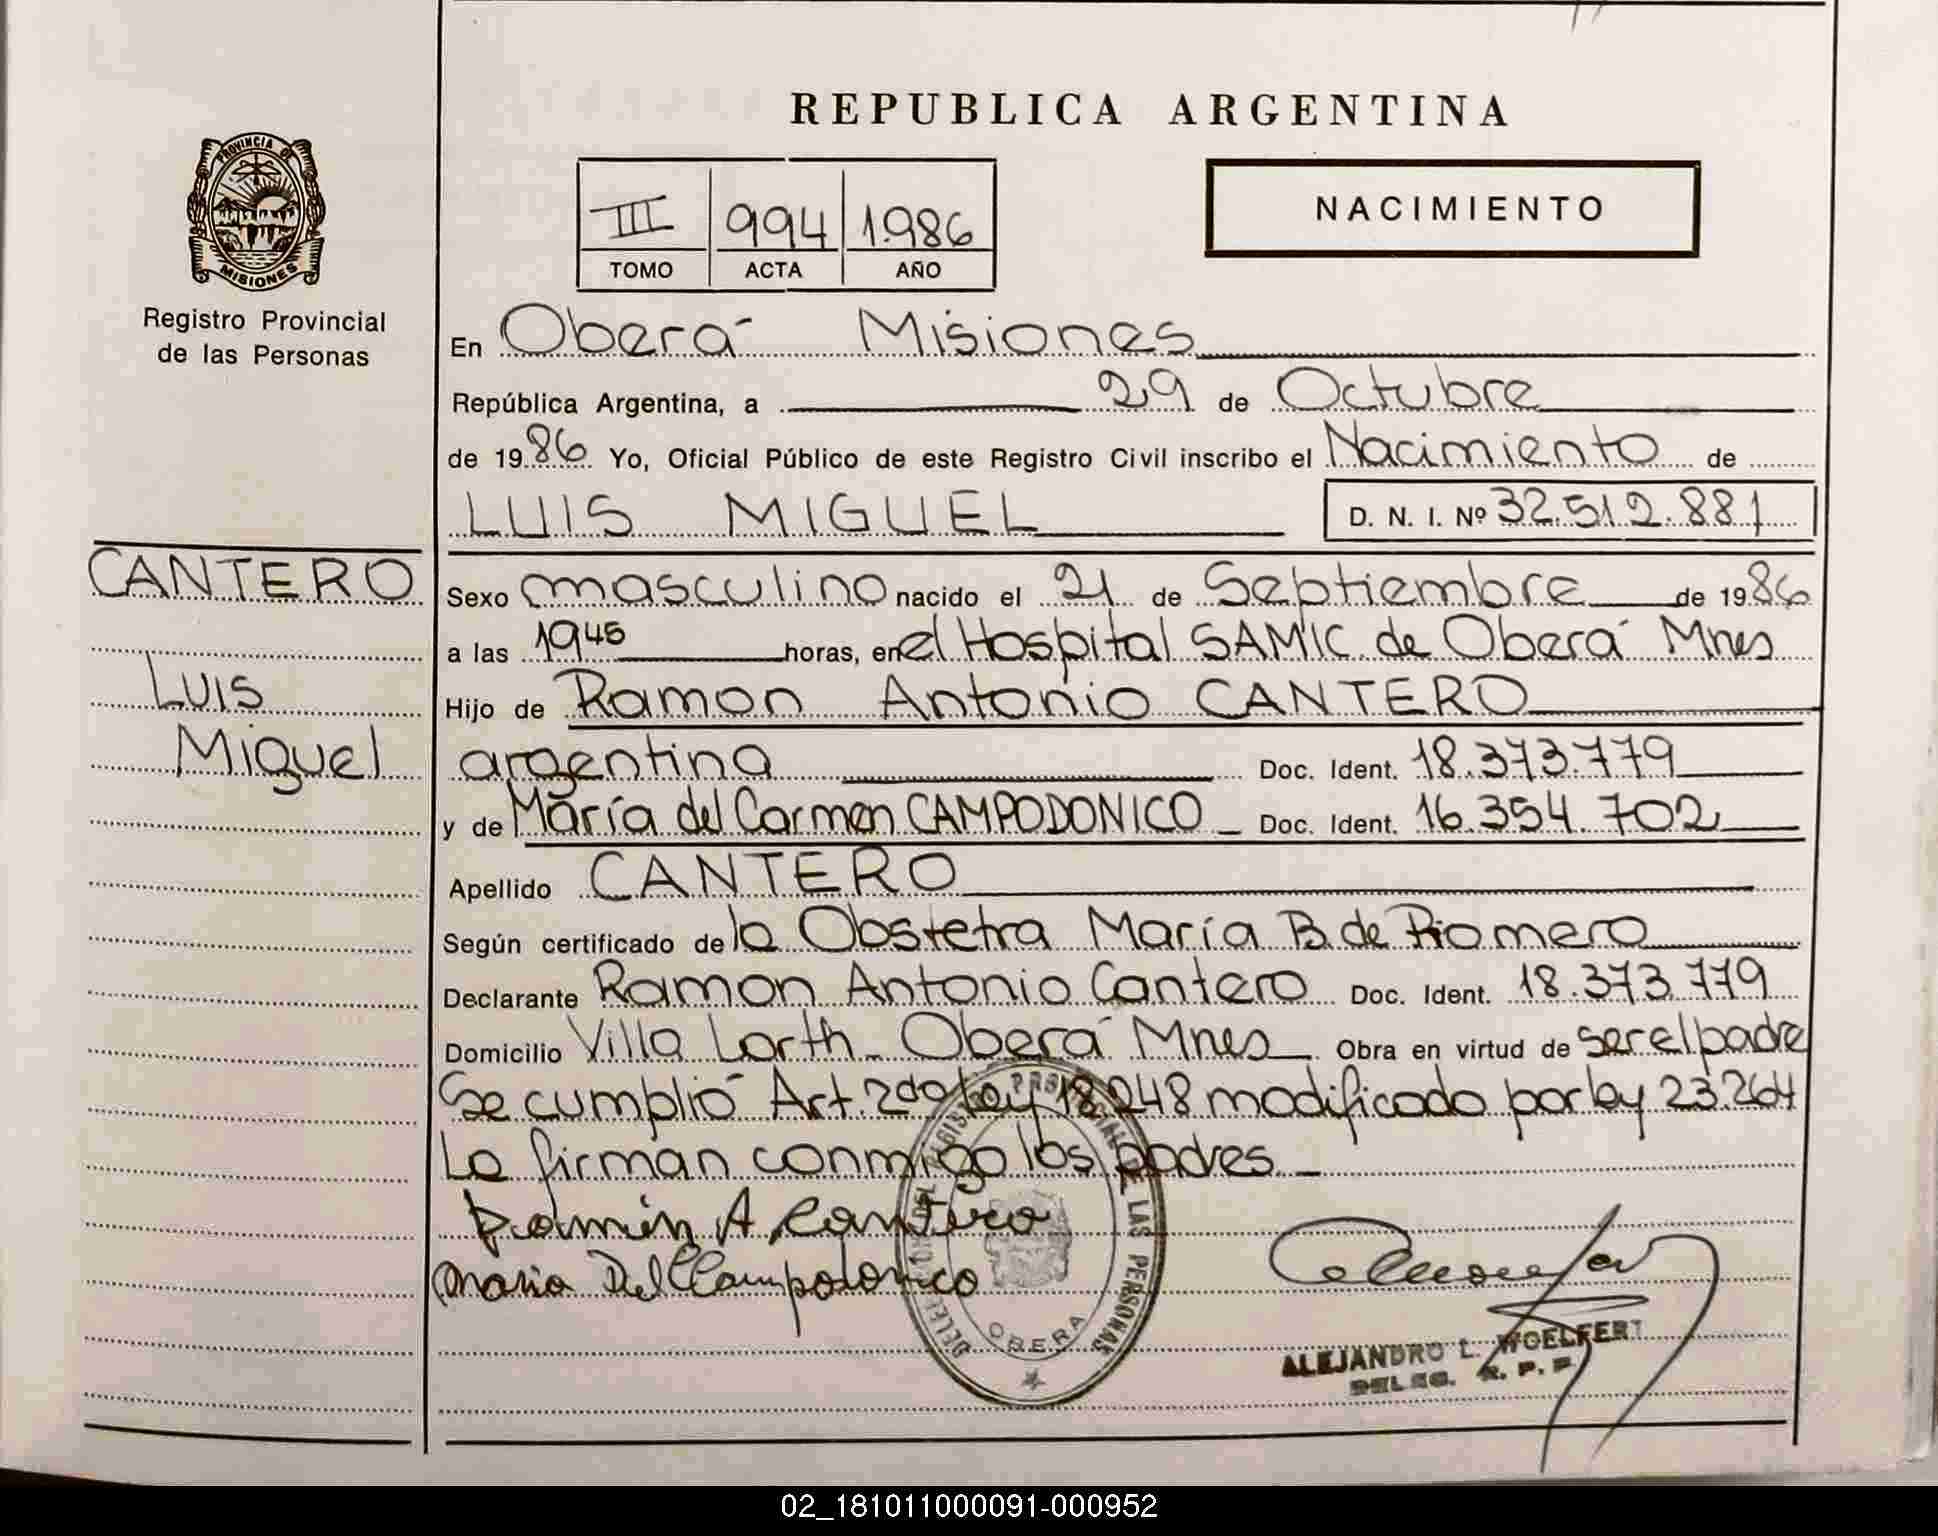 REPUBLICA ARGENTINA
PROVINCIA DE
MISIONES
Registro Provincial
de las Personas
III 994 1.986
TOMO ACTA AÑO
NACIMIENTO
En Oberá Misiones
República Argentina, a 29 de Octubre
de 1986 Yo, Oficial Público de este Registro Civil inscribo el Nacimiento de
LUIS MIGUEL D. N. I. Nº 32.512.881
CANTERO
Luis
Miguel
Sexo masculino nacido el 21 de Septiembre de 1986
a las 19 45 horas, en el Hospital SAMIC de Oberá Mnes
Hijo de Ramon Antonio CANTERO
argentina Doc. Ident. 18.373.779
y de María del Carmen CAMPODONICO Doc. Ident. 16.354.702
Apellido CANTERO
Según certificado de la Obstetra María B. de Romero
Declarante Ramon Antonio Cantero Doc. Ident. 18.373.779
Domicilio Villa Lorth Oberá Mnes Obra en virtud de ser el padre
Se cumplió Art. 2do ley 18.248 modificado por ley 23.264
Lo firman conmigo los padres
Ramón A Cantero
Maria Del C Campodonico
LAS PERSONAS
OBERA
ALEJANDRO L. WOELFERT
DELEG. R. P. P.
02_181011000091-000952